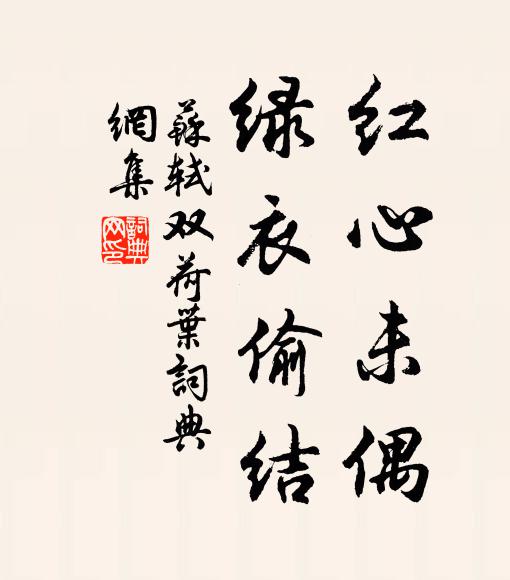 红心未偶
绿衣偷结
蘇軾双荷葉詞典
網集
詞典
网印